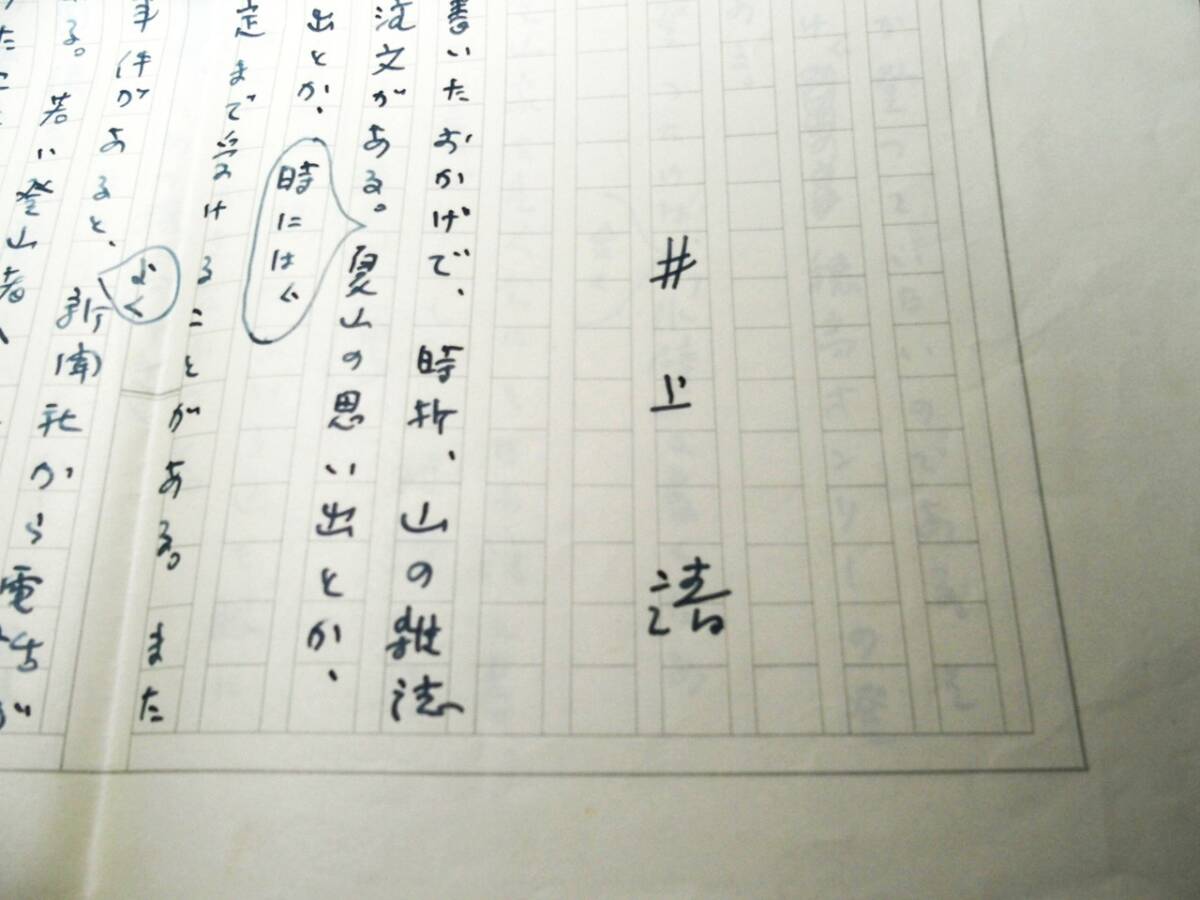 井上靖
書いたおかげで、時折、山の雑誌
注文がある。夏山の思い出とか、
時には
出とか、
定まで受けることがある。また
よく
事件があると、新聞社から電話が
る。若い登山者